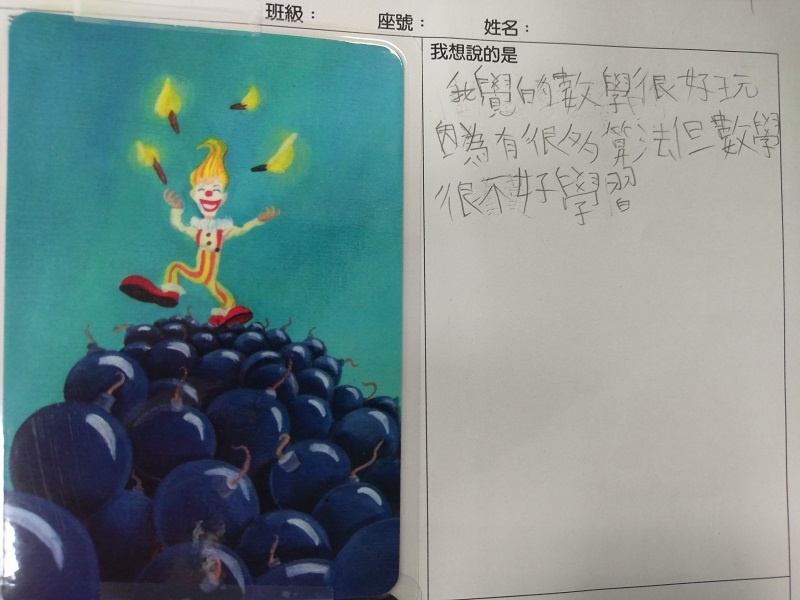 班級：
座號：
姓名：
我想說的是
我覺的數學很好玩
因為有很多算法但數學
很不好學習